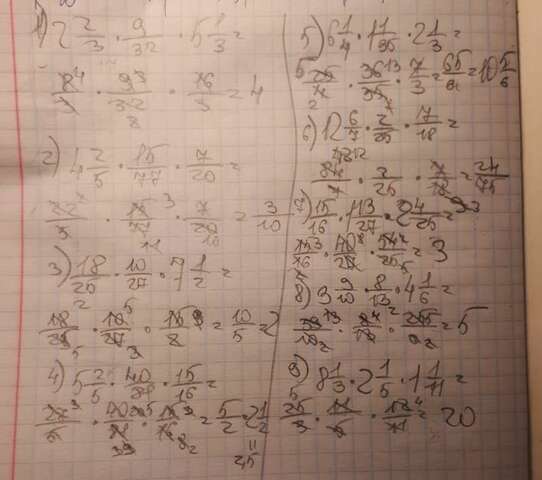 1) 2 2/3 · 9/32 · 5 1/3 =
8/3 · 9/32 · 16/3 = 4
2) 4 2/5 · 15/77 · 7/20 =
22/5 · 15/77 · 7/20 = 3/10
3) 18/25 · 10/27 · 7 1/2 =
18/25 · 10/27 · 15/2 = 10/5 = 2
4) 5 2/5 · 40/81 · 15/16 =
27/5 · 40/81 · 15/16 = 5/2 = 2 1/2
2,5
5) 6 1/4 · 1 1/35 · 2 1/3 =
25/4 · 36/35 · 7/3 =
6) 12 6/7 · 2/25 · 7/18 =
· 2/25 · 7/18 = 24/75
7) 15/16 · 1 13/27 · 2 4/25 =
15/16 · 40/27 · 54/25 = 3
8) 3 9/10 · 8/13 · 4 1/6 =
39/10 · 8/13 · 25/6 = 5
9) 8 1/3 · 2 1/5 · 1 1/11 =
25/3 · 11/5 · 12/11 = 20